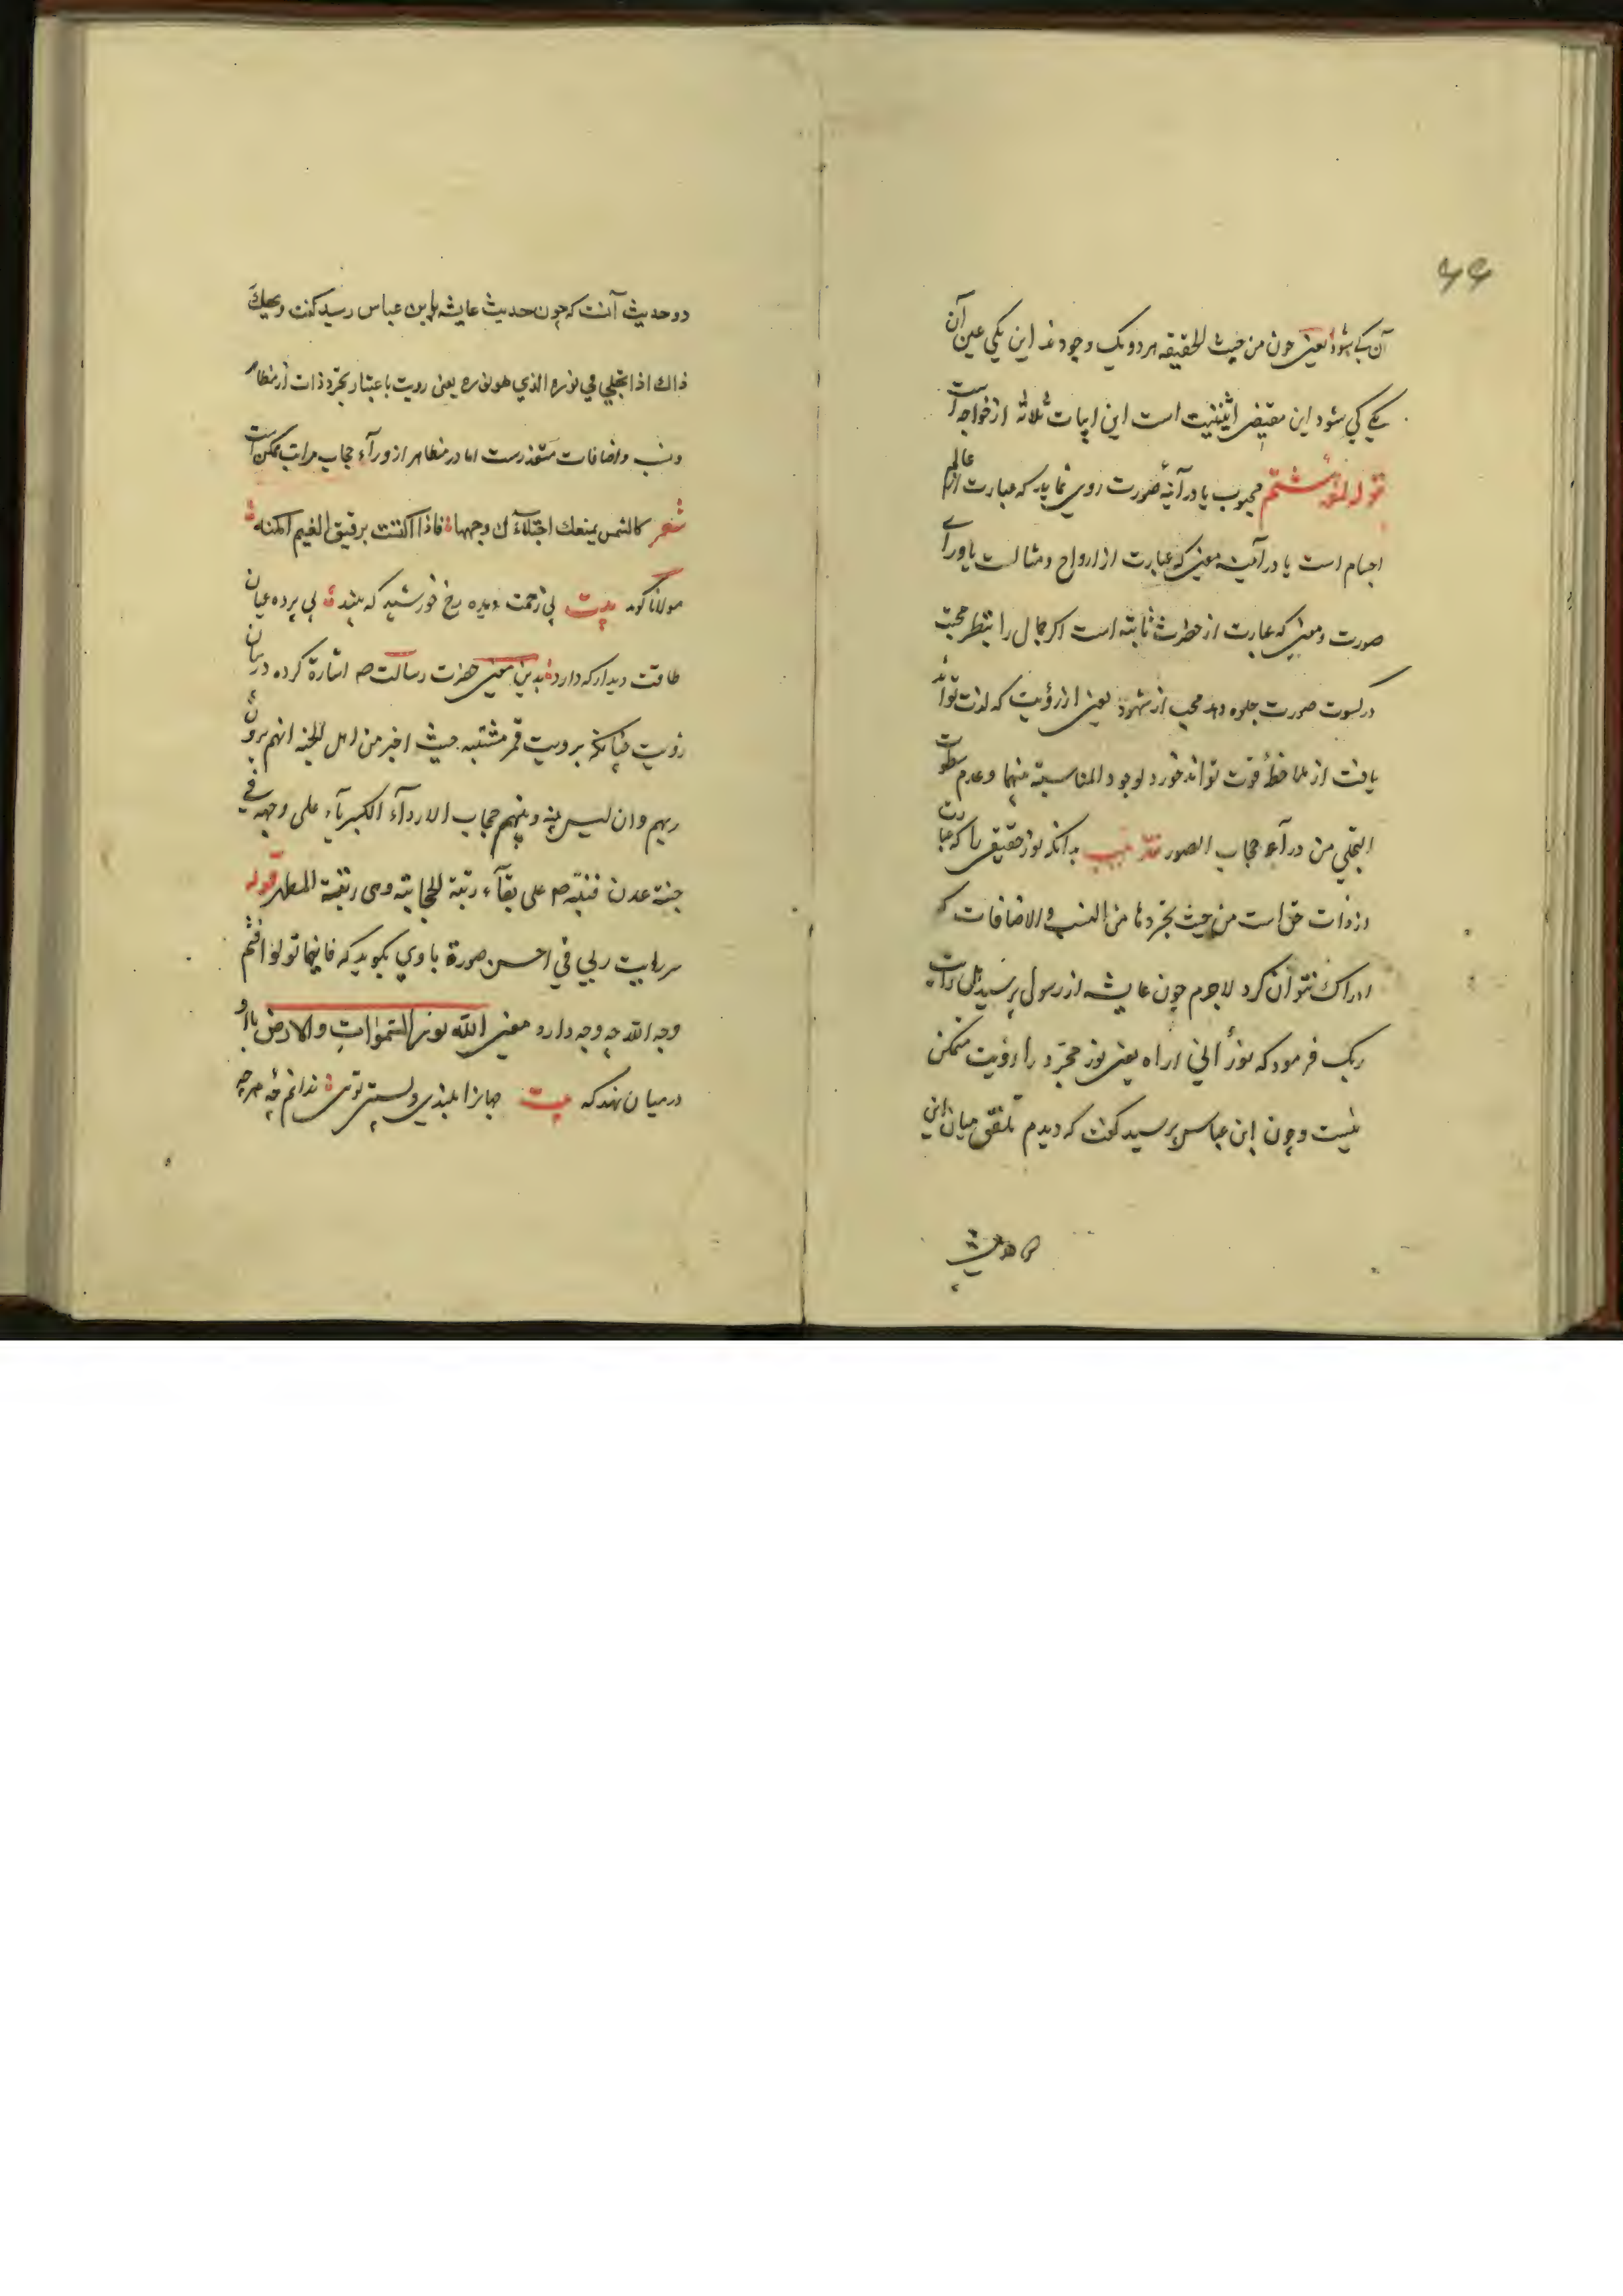 ۶۶
آن یکی شود یعنی چون من حیث الحقیقه هر دو یک وجودند این یکی عین آن
یکی کی شود این مقتضی اثنینیت است این ابیات ثلاثه از خواجه است
قوله لمعه ششم محبوب یا در آینهٔ صورت روی نماید که عبارت از عالم
اجسام است یا در آینه معنی که عبارت از ارواح و مثالست یا ورای
صورت و معنی که عبارت از حضرت ثابته است اگر جمال را بنظر محبت
در کسوت صورت جلوه دهد محب از شهود یعنی از رؤیت که لذت تواند
یافت از ملاحظه قوت تواند خورد لوجود المناسبة بینهما و عدم سطوت
التجلی من ورآء حجاب الصور بدانکه نور حقیقی را که عبارت
از ذات حق است من حیث تجردها من النسب و الاضافات که
ادراک نتوان کرد لاجرم چون عایشه از رسول پرسید هل رأیت
ربک فرمود که نورٌ انی اراه یعنی نور مجرد را رؤیت ممکن
نیست و چون ابن عباس پرسید گفت که دیدم میان این
دو حدیث آنست که چون حدیث عایشه بابن عباس رسید گفت ویحك
ذاك اذا تجلي في نوره الذي هو نوره یعنی رویت باعتبار تجرد ذات از مظاهر
و نسب و اضافات متعذرست اما در مظاهر از ورآء حجاب مراتب ممکن است
شعر كالشمس يمنعك اجتلآءك وجهها فاذا اكتست برقيق الغيم امكنا
مولانا گوید بیت بی زحمت دیده رخ خورشید که بیند بی پرده عیان
طاقت دیدار که دارد بدین معنی حضرت رسالت ص اشارة کرده در بیان
رؤیت چنانکه برویت قمر مشتبه حیث اخبر من اهل الجنه انهم یرون
ربهم و ان لیس بینه و بینهم حجاب الا ردآء الکبریآء علی وجهه فی
جنة عدن فنبّه ص علی بقآء رتبة الحجابیة وهی رتبة المظهر قوله
سر رایت ربی فی احسن صورة با وی بگوید که فاینما تولوا فثم
وجه الله چه وجه دارد معنی الله نور السموات والارض با او
در میان نهد که بیت جهانرا بلندی و پستی توی ندانم چهٔ هر چه